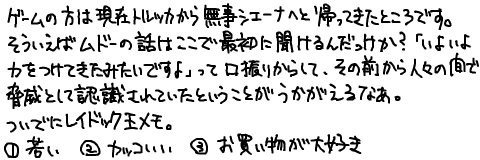 ゲームの方は現在トルッカから無事シエーナへと帰ってきたところです。
そういえばムドーの話はここで最初に聞けるんだっけか?「いよいよ
力をつけてきたみたいですよ」って口振りからして、その前から人々の間で
脅威として認識されていたということがうかがえるなあ。
ついでにレイドック王メモ。
①若い ②カッコいい ③お買い物が大好き